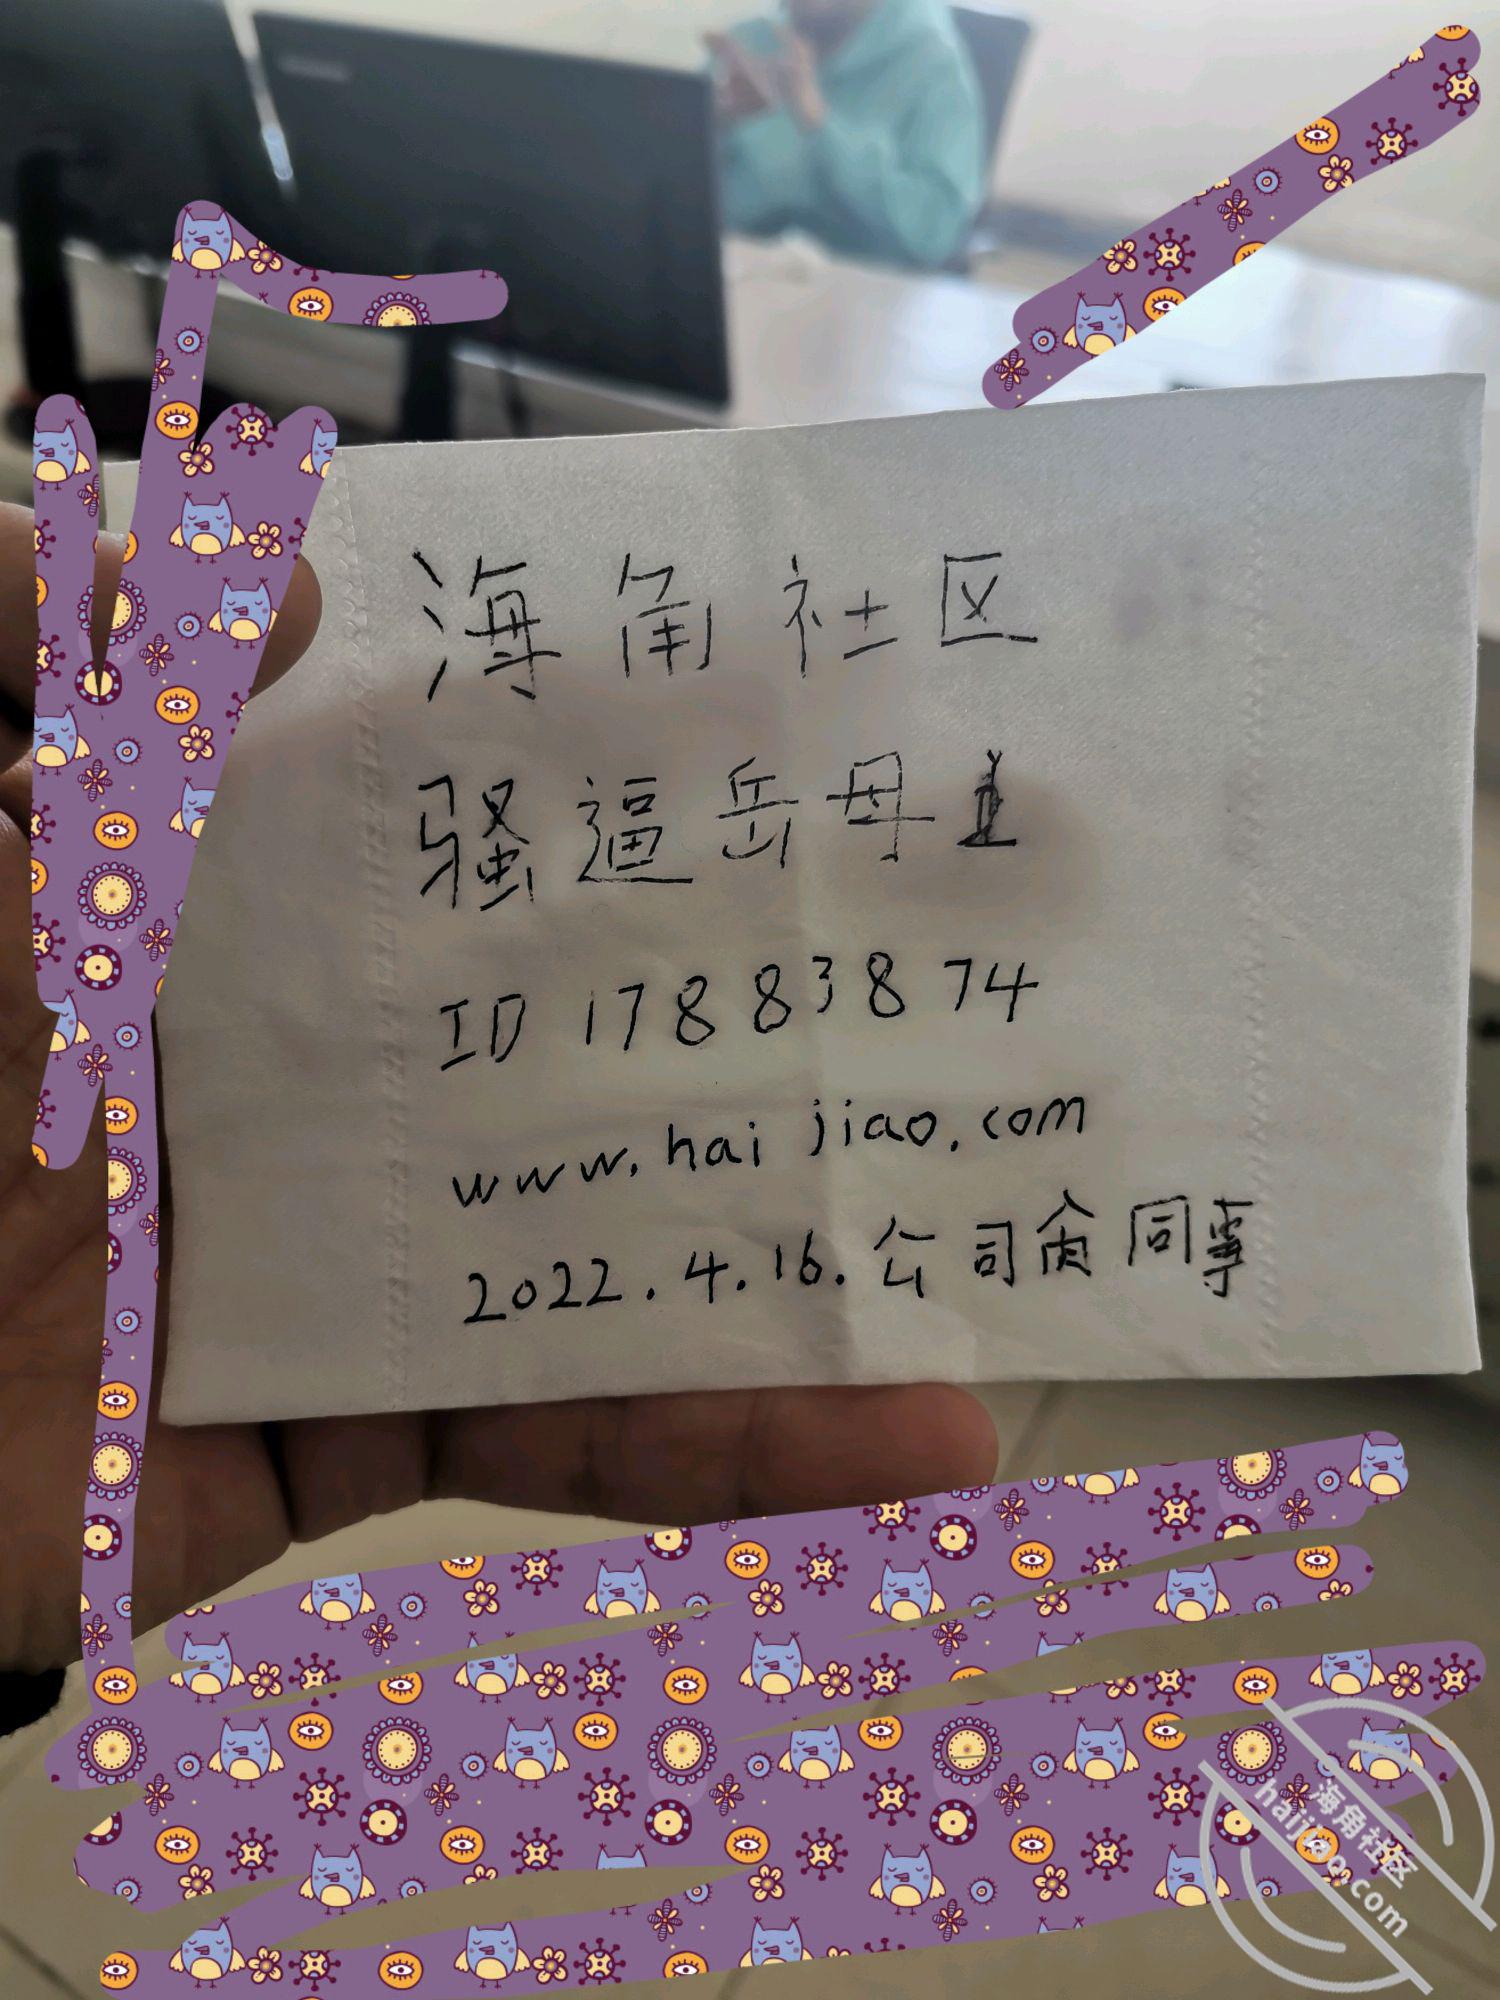 海角社区
骚逼岳母
ID 17883874
www.haijiao.com
2022.4.16.公司 同事
海角社区
haijiao.com